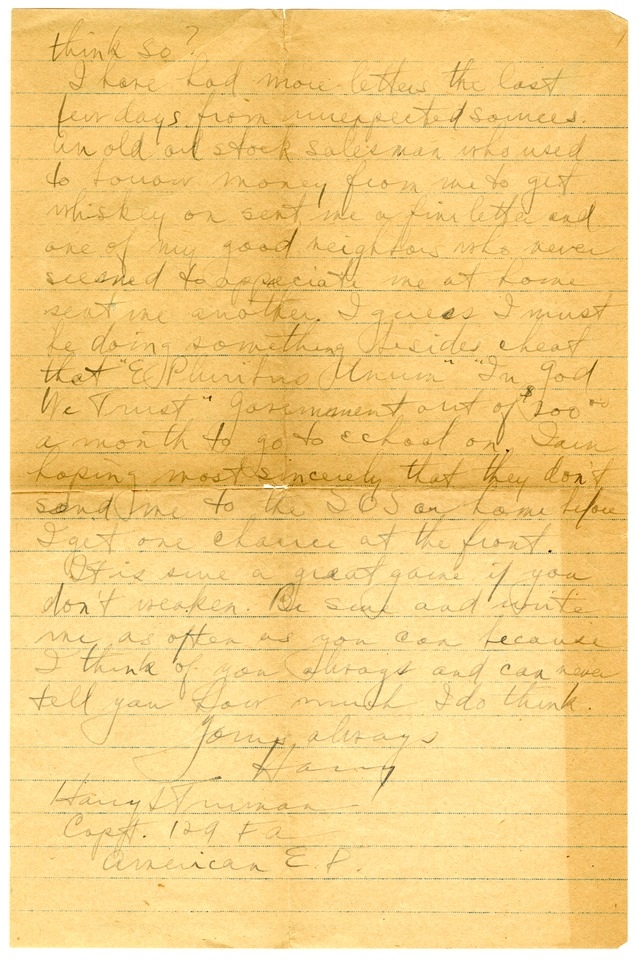 think so?
I have had more letters the last
few days from unexpected sources.
An old oil stock salesman who used
to borrow money from me to get
whiskey on sent me a fine letter and
one of my good neighbors who never
seemed to appeciate me at home
sent me another. I guess I must
be doing something besides cheat
that "E Pluribus Unum" "In God
We Trust" Government out of $200 00
a month to go to school on. I am
hoping most sincerely that they don't
send me to the SOS or home before
I get one chance at the front.
It is sure a great game if you
don't weaken. Be sure and write
me as often as you can because
I think of you always and can never
tell you how much I do think.
Yours always
Harry
Harry S Truman
Capt. 129 F A
American E. F.